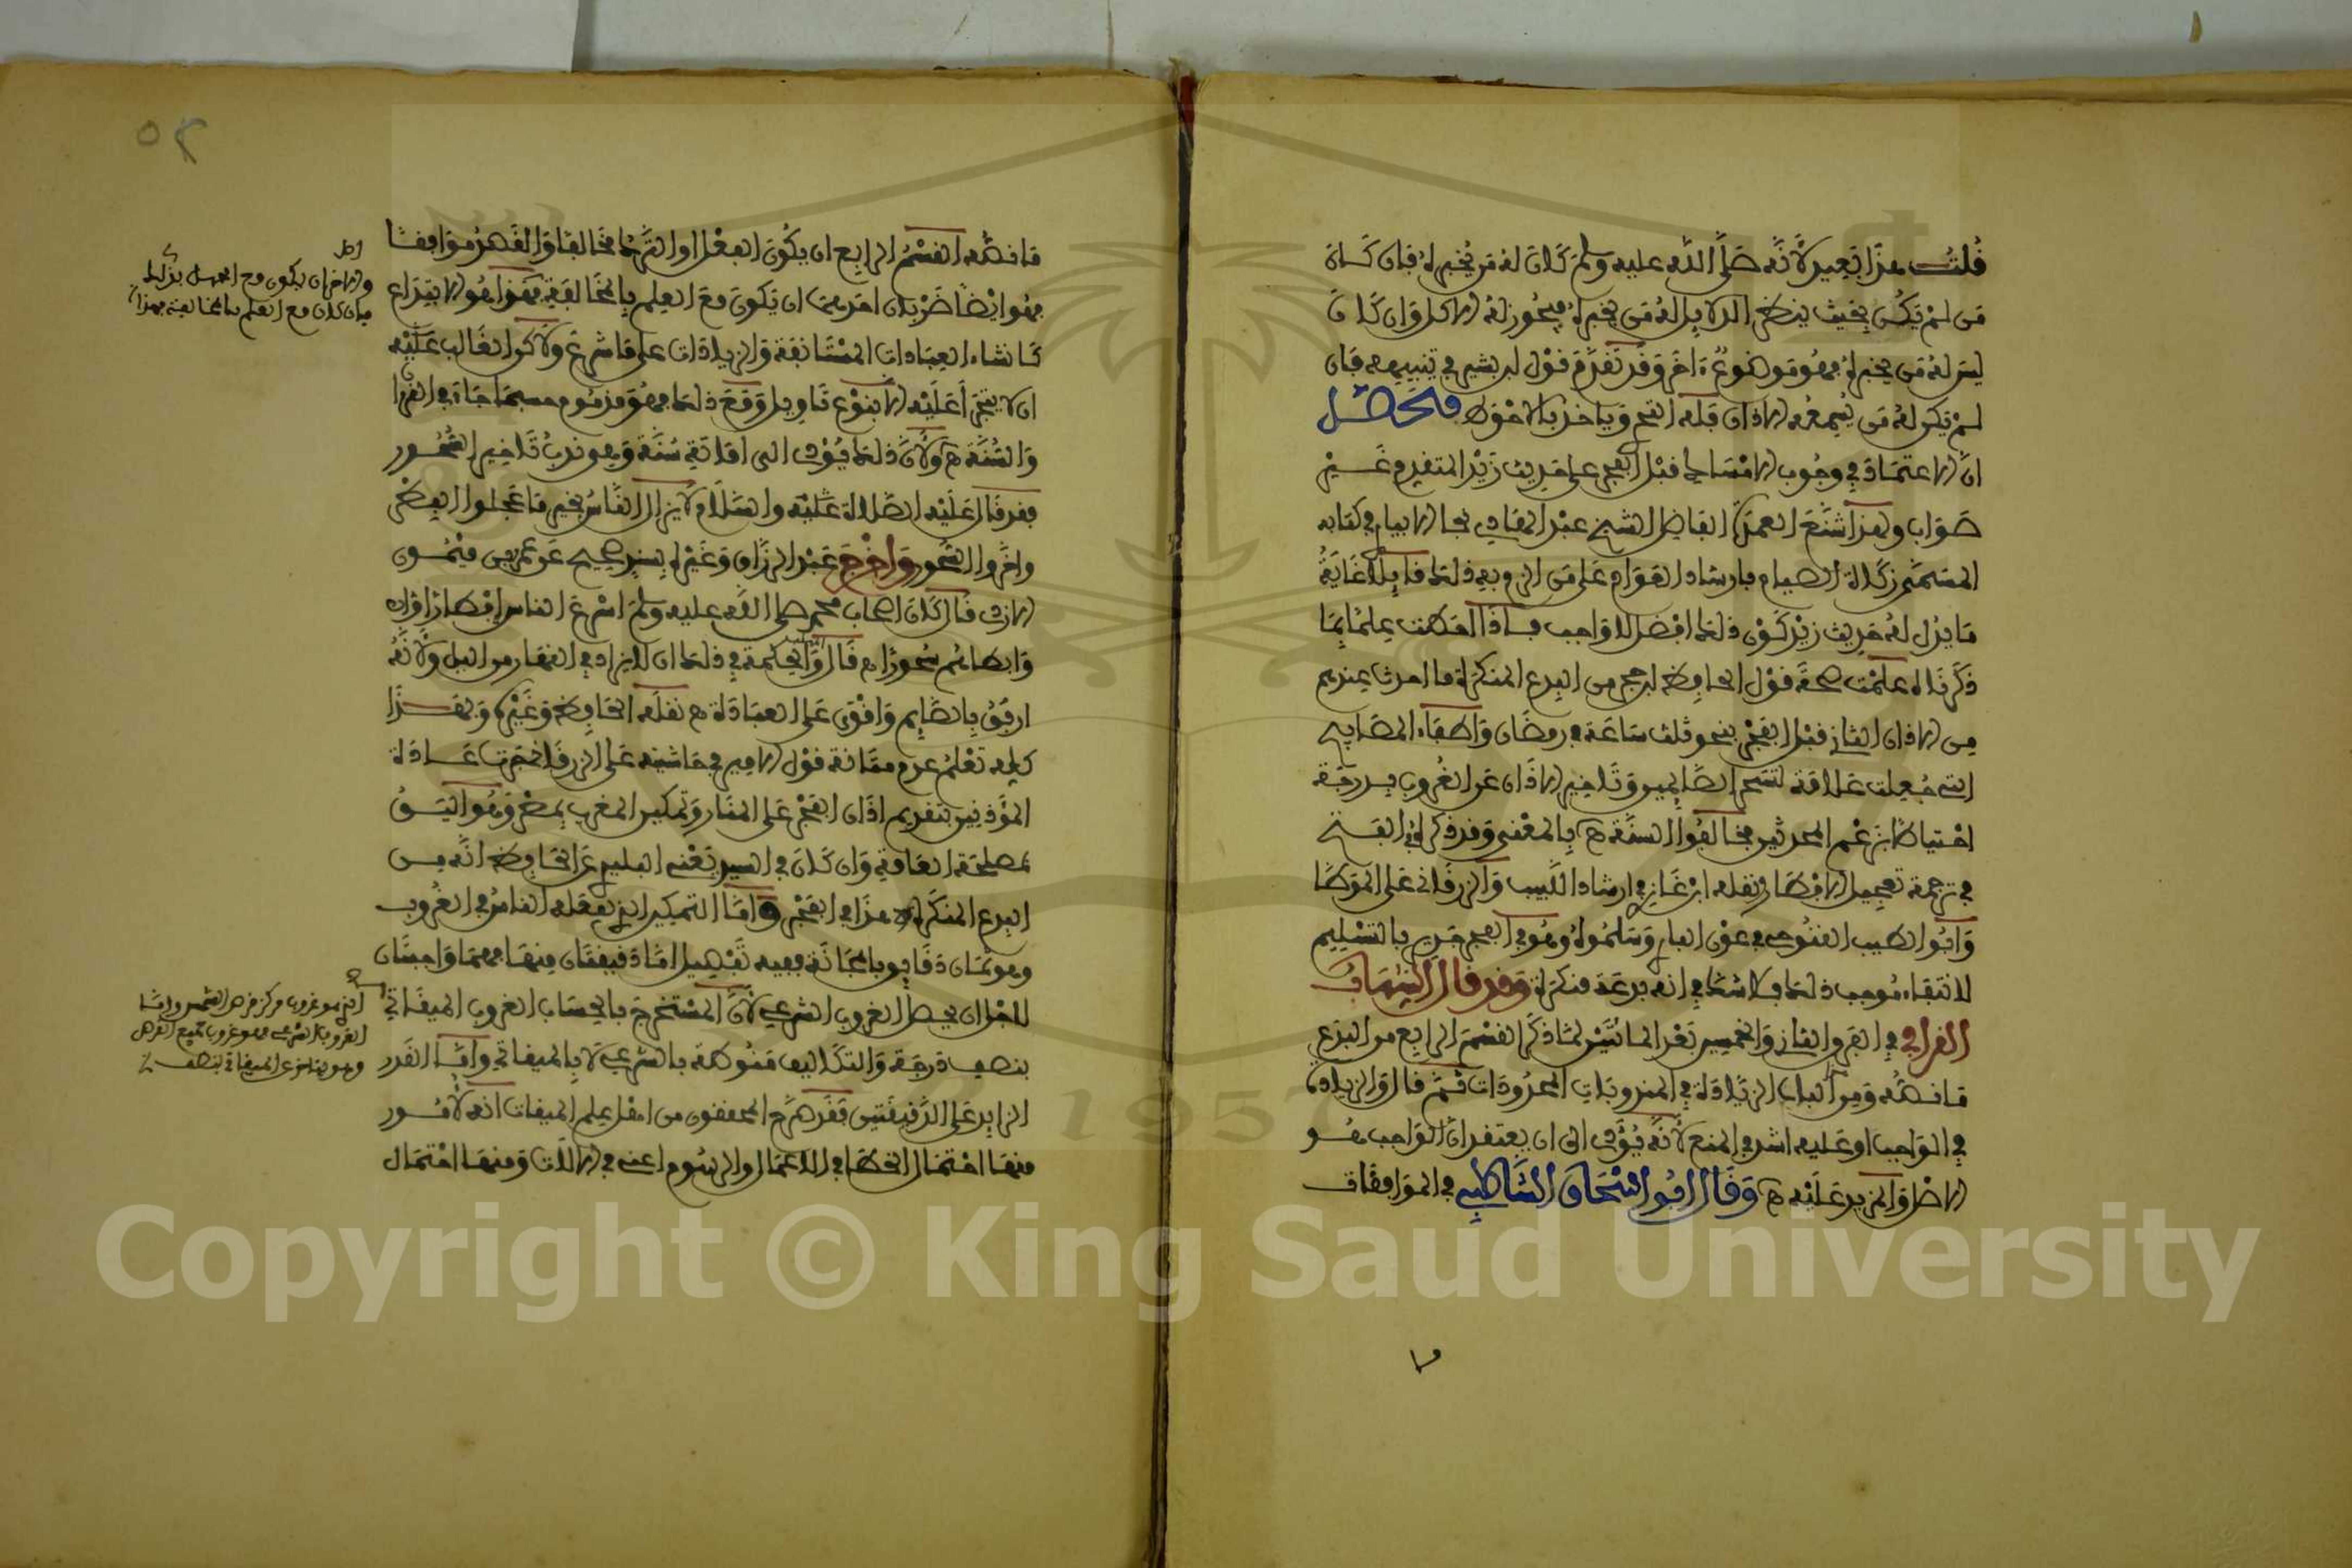 قلت هذا بعيد لأنه صلى الله عليه وسلم كان له من يخبره فإن كان
من لم يكن بحيث ينظر الدلايل له من يخبره فيجوز له الأكل وإن كان
ليس له من يخبره فهو موضوع آخر وقد تقدم قول ابن بشير في تنبيهه فإن
لم تكن له من يسمعه الأذان قلد الفجر وياخذ بالأحوط فتحصل
أن الاعتماد في وجوب الإمساك قبل الفجر على حديث زيد المتقدم غير
صواب ولهذا شنع العمدة الفاضل الشيخ عبد القادر
المسمى زكاة الصيام بإرشاد العوام على من الزم بعد ذلك قايلا غاية
ما يدل له حديث زيد كون ذلك افضل لا واجب فإذا احطت علما بما
ذكرناه علمت صحة قول الحافظ ابن حجر من البدع المنكرة ما احدث بعدهم
من الأذان الثاني قبل الفجر بنحو ثلث ساعة في رمضان وإطفاء المصابيح
التي جعلت علامة لتسحر الصايمين وتاخير الأذان عن الغروب بدرجة
احتياطا بزعمهم المحدثين فخالفوا السنة هـ بالمعنى وقد ذكره في الفتح
في ترجمة تعجيل الإفطار ونقله ابن غازي في إرشاد اللبيب والزرقاني على الموطا
وأبو الطيب القنوجي في عون الباري وسلموه وهو في الفجر جدير بالتسليم
لانتفاء موجب ذلك فلا شك في انه بدعة منكرة وقد قال الشهاب
القرافي في الفرق الثاني والخمسين بعد الماتين لما ذكر القسم الرابع من البدع
ما نصه ومن الباب الزيادة في المندوبات المحدودات ثم قال والزيادة
في الواجب او عليه اشد في المنع لأنه يؤدي الى ان يعتقد ان الواجب هو
الأصل والمزيد عليه هـ وقال ابو اسحاق الشاطبي في الموافقات
ما نصه القسم الرابع ان يكون الفعل او الترك مخالفا والقصد موافقا
فهو ايضا ضربان احدهما ان يكون مع العلم بالمخالفة فهذا هو الابتداع
كانشاء العبادات المستانفة والزيادات على ما شرع ولاكن الغالب عليه
ان لا يتجرأ عليه الا بنوع تاويل ومع ذلك فهو مذموم حسبما جاء في القرآن
والسنة هـ ولأن ذلك يؤدي الى اماتة سنة وهو ندب تاخير السحور
فقد قال عليه الصلاة عليه والسلام لا يزال الناس بخير ما عجلوا الفطر
واخروا السحور واخرج عبد الرزاق وغيره بسند صحيح عن عمرو بن ميمون
الأودي قال كان اصحاب محمد صلى الله عليه وسلم اسرع الناس إفطارا
وابطاهم سحورا هـ قال والحكمة في ذلك ان لا يزاد في النهار من الليل ولأنه
ارفق بالصايم واقوى على العبادة هـ نقله الحافظ وغيره وبهذا
كله تعلم عدم متانة قول الأمير في حاشيته على الزرقاني جرت عادة
المؤذنين بتقديم اذان الفجر على المنار وتمكين المغرب بمصر وهو اليق
لمصلحة العامة وان كان في السير نقني البليدي عن الحافظ انه من
البدع المنكرة هذا في الفجر واما التمكين الذي يفعله الناس في الغروب
وهو ثمان دقايق بالمجانة ففيه تفصيل اما دقيقتان منها فهما واجبتان
لأجل ان يحصل الغروب الشرعي لأن المستخرج بالحساب الغروب الميقاتي
بنصف درجة والتكاليف منوطة بالشرعي لا بالميقاتي واما القدر
الزايد على الدقيقتين فقد صرح المحققون من اهل علم الميقات انه لأمور
منها احتمال الخطا في الأعمال والرسوم اعني في الآلات ومنها احتمال
والآخر ان يكون مع الجهل بذلك
فإن كان مع العلم بالمخالفة فهذا
الذي هو غروب مركز قرص الشمس واما
الغروب الشرعي فهو غروب جميع القرص
وهو يتاخر عن الميقاتي بنصف
٥٢
Copyright © King Saud University
1957